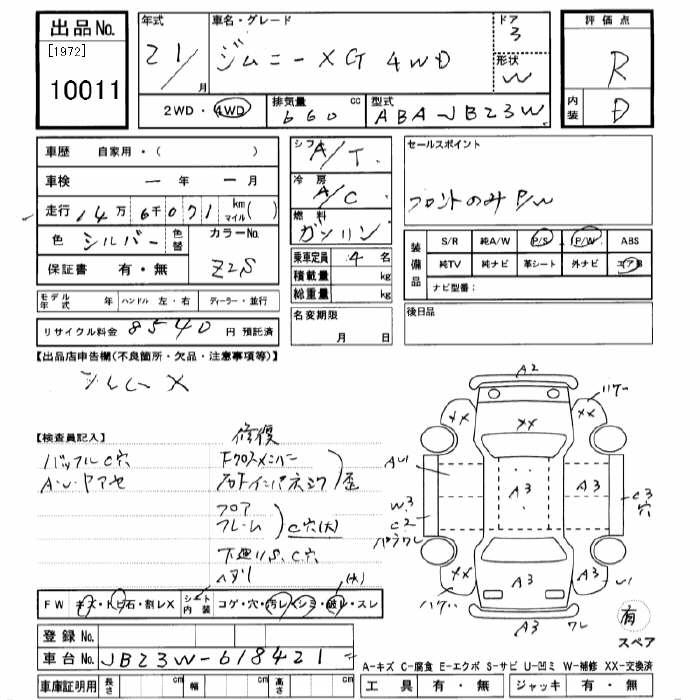 出品No.
[1972]
10011
年式
21/
月
車名・グレード
ジムニー XG 4WD
ドア
3
形状
W
評価点
R
内装
D
2WD・4WD
排気量
660
cc
型式
ABA-JB23W
車歴 自家用・( )
車検 ー 年 ー 月
走行 14万 6千071 km マイル( )
色 シルバー
色替
カラーNo.
Z2S
保証書 有・無
シフト
A/T
冷房
A/C
燃料
ガソリン
乗車定員 4 名
積載量 kg
総重量 kg
セールスポイント
フロントのみ P/W
装備品
S/R 純A/W P/S P/W ABS
純TV 純ナビ 革シート 外ナビ エアB
ナビ型番:
モデル年式 年 ハンドル 左・右 ディーラー・並行
リサイクル料金 8540 円 預託済
名変期限
月 日
後日品
【出品店申告欄(不良箇所・欠品・注意事項等)】
【検査員記入】
修復
バッフル C穴
Fクロスメンバー
フロア
フレーム
C穴(大)
歪
下廻りS、C穴
ヘタリ
A2
XX
XX
XX
ハゲー
AU
A3
A3
A3
W3
C2
C3
穴
XX
A3
A3
U1
ワレ
有
スペア
FW キズ・トビ石・割レX
シート内装
コゲ・穴・汚レ・シミ・破レ・スレ
(大)
登録No.
車台No. JB23W-618421
車庫証明用 長さ cm 幅 cm 高さ cm
A-キズ C-腐食 E-エクボ S-サビ U-凹ミ W-補修 XX-交換済
工具 有・無 ジャッキ 有・無